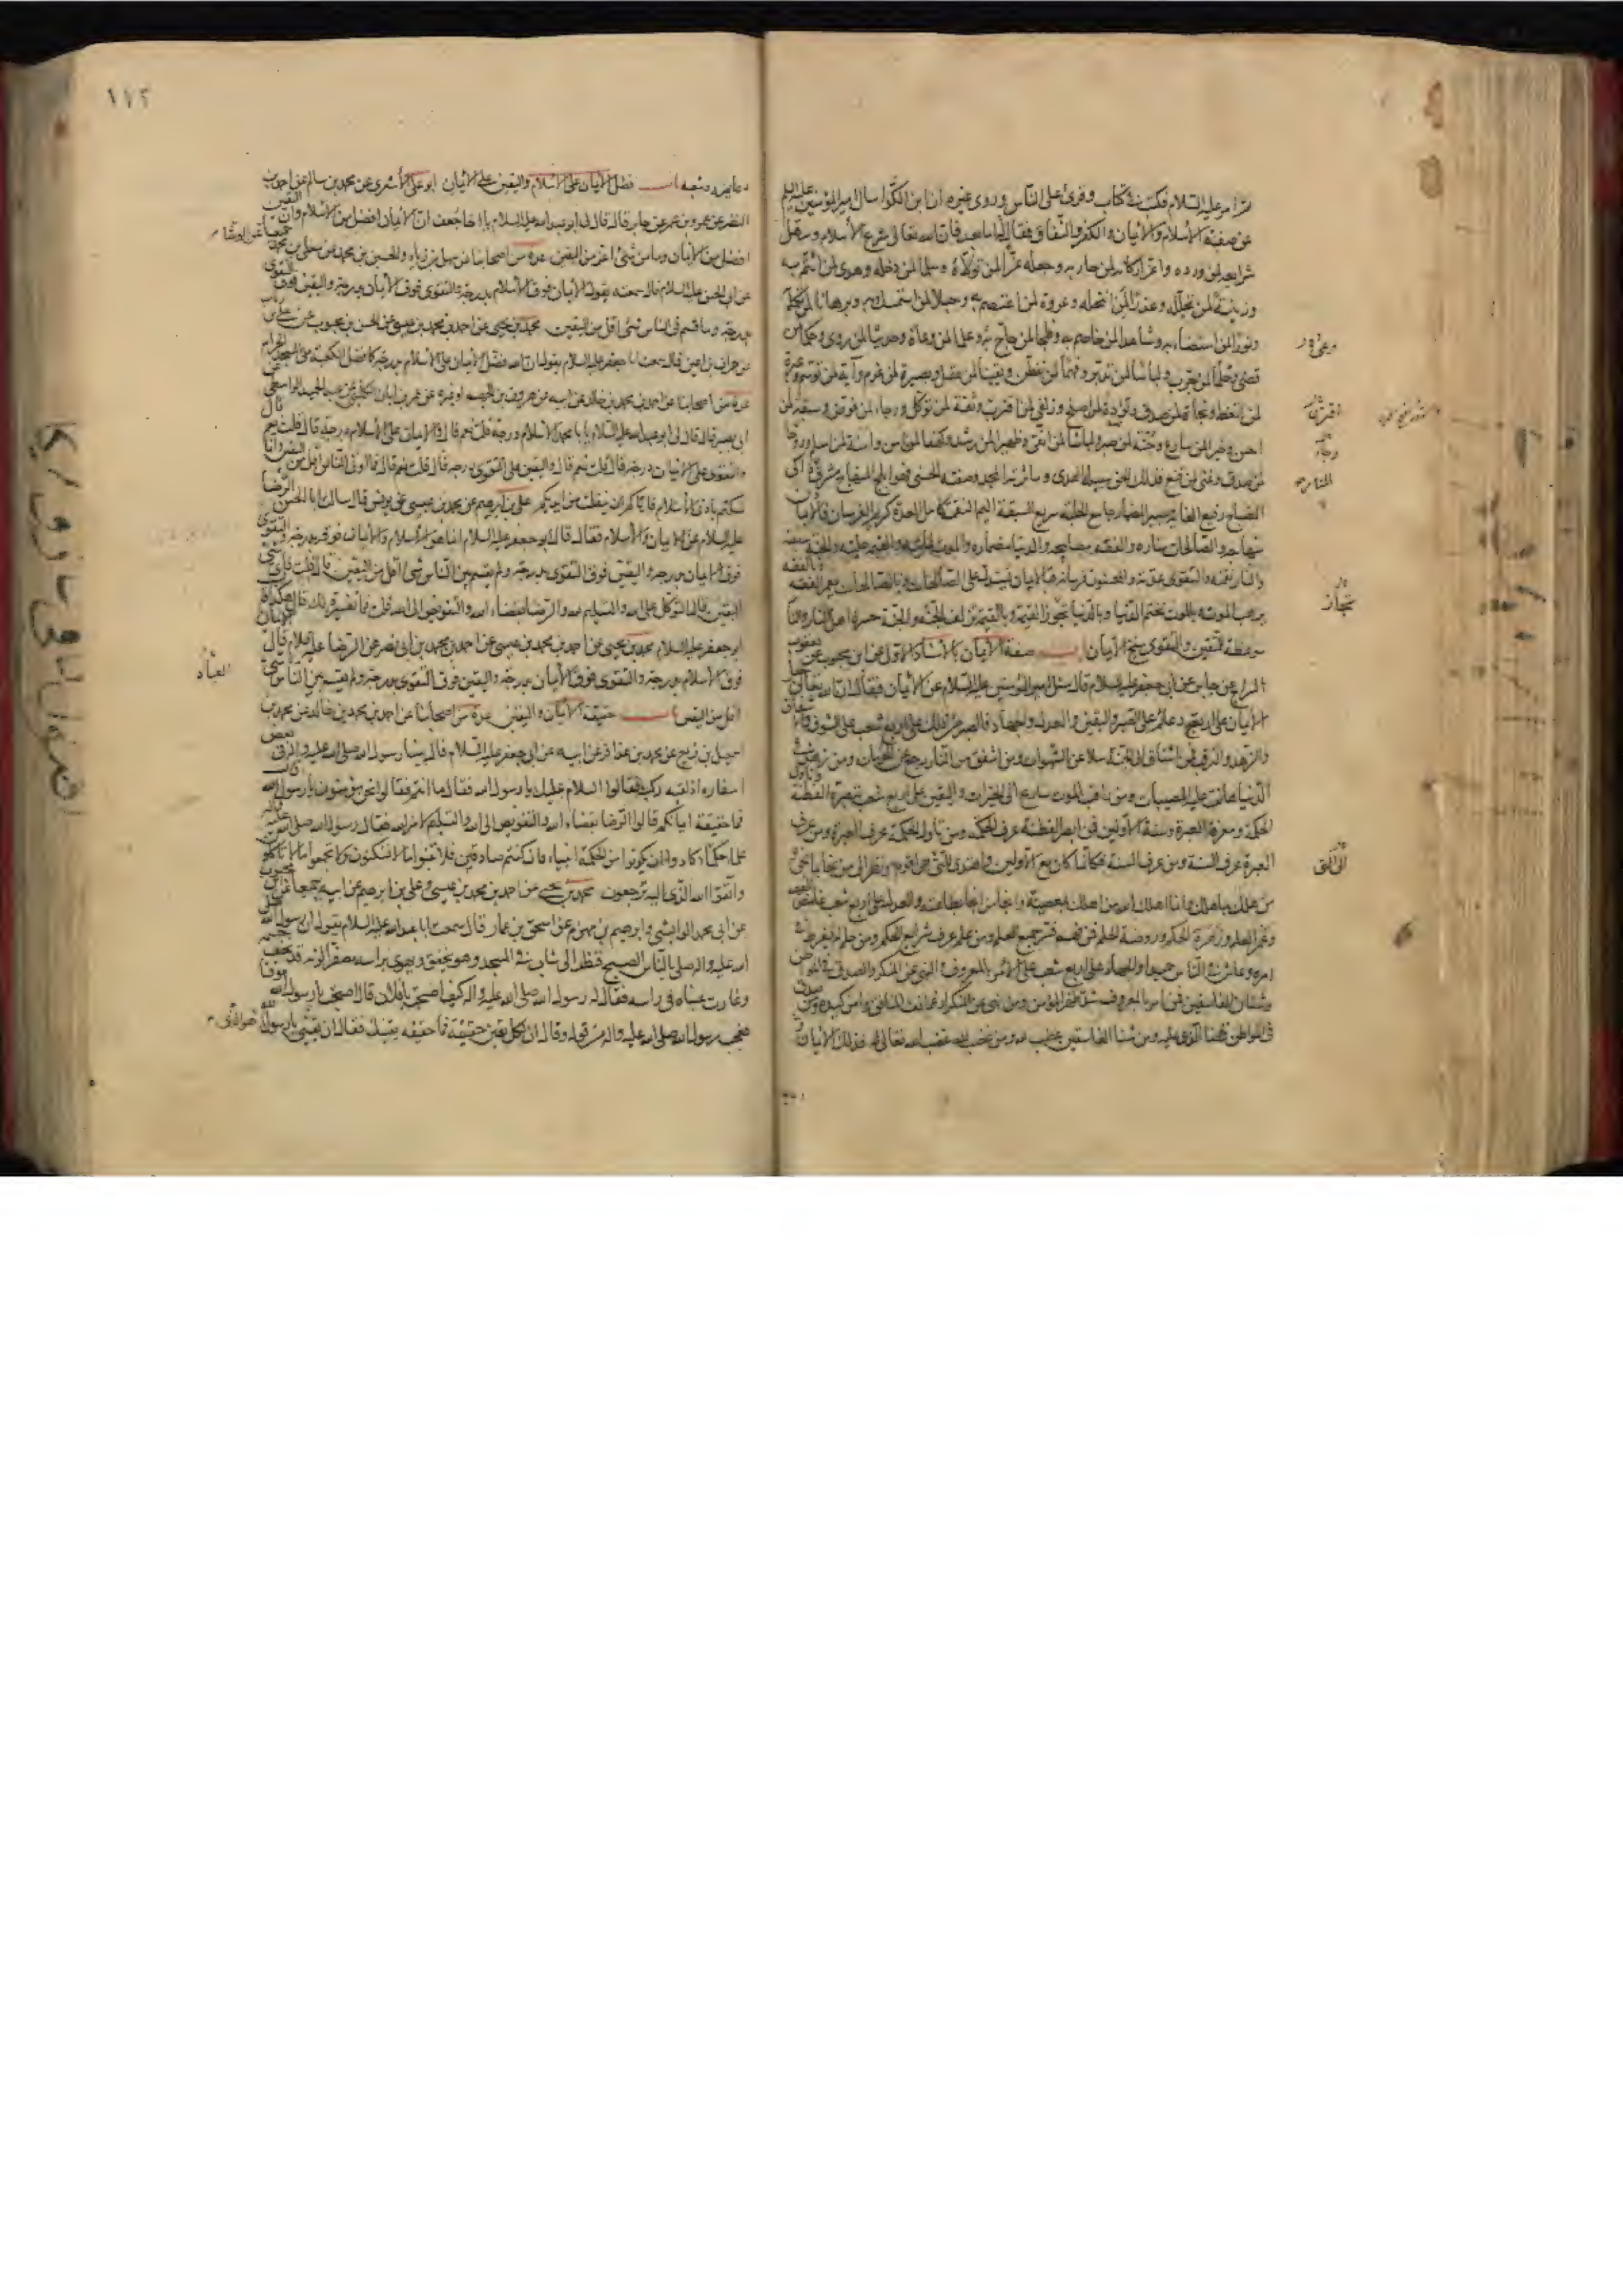 ثم امر عليه السلام فكتب في كتاب وقرئ على الناس وروى غيره ان ابن الكوا سال امير المؤمنين عليه السلم
عن صفة الاسلام والايمان والكفر والنفاق فقال اما بعد فان الله تعالى شرع الاسلام وسهل
شرايعه لمن ورده واعز اركانه لمن حاربه وجعله عزا لمن تولاه وسلما لمن دخله وهدى لمن ائتم به
وزينة لمن تجلله وعذرا لمن انتحله وعروة لمن اعتصم به وحبلا لمن استمسك به وبرهانا لمن تكلم
ونورا لمن استضاء به وشاهدا لمن خاصم به وفلجا لمن حاج به وعلما لمن وعاه وحديثا لمن روى وحكما لمن
قضى وحلما لمن جرب ولباسا لمن تدبر وفهما لمن تفطن ويقينا لمن عقل وبصيرة لمن عزم وآية لمن توسم وعبرة
لمن اتعظ ونجاة لمن صدق وتؤدة لمن اصلح وزلفى لمن اقترب وثقة لمن توكل ورجاء لمن فوض وسبقة لمن
احسن وخيرا لمن سارع وجنة لمن صبر ولباسا لمن اتقى وظهيرا لمن رشد وكهفا لمن امن وامنة لمن اسلم وروحا
لمن صدق وغنى لمن قنع فذلك الحق سبيله الهدى وماثرته المجد وصفته الحسنى فهو ابلج المنهاج مشرق
المصباح رفيع الغاية يسير المضمار جامع الحلبة سريع السبقة اليم النقمة كامل العدة كريم الفرسان فالايمان
منهاجه والصالحات مناره والفقه مصابيحه والدنيا مضماره والموت غايته والقيمة حلبته والجنة سبقته
والنار نقمته والتقوى عدته والمحسنون فرسانه فبالايمان يستدل على الصالحات وبالصالحات يعمر الفقه وبالفقه
يرهب الموت وبالموت تختم الدنيا وبالدنيا تجوز القيمة وبالقيمة تزلف الجنة والجنة حسرة اهل النار والنار
موعظة المتقين والتقوى سنخ الايمان باب صفة الايمان بالاسناد الاول عن ابن محبوب عن يعقوب
السراج عن جابر عن ابي جعفر عليه السلام قال سئل امير المؤمنين عليه السلام عن الايمان فقال ان الله تعالى جعل
الايمان على اربع دعائم على الصبر واليقين والعدل والجهاد فالصبر من ذلك على اربع شعب على الشوق والاشفاق
والزهد والترقب فمن اشتاق الى الجنة سلا عن الشهوات ومن اشفق من النار رجع عن المحرمات ومن زهد في
الدنيا هانت عليه المصيبات ومن راقب الموت سارع الى الخيرات واليقين على اربع شعب تبصرة الفطنة وتاول
الحكمة ومعرفة العبرة وسنة الاولين فمن ابصر الفطنة عرف الحكمة ومن تاول الحكمة عرف العبرة ومن عرف
العبرة عرف السنة ومن عرف السنة فكانما كان مع الاولين واهتدى للتي هي اقوم ونظر الى من نجا بما نجى
من هلك بما هلك وانما اهلك الله من اهلك بمعصيته وانجا من انجا بطاعته والعدل على اربع شعب غامض الفهم
وغمر العلم وزهرة الحكم وروضة الحلم فمن فهم فسر جميع العلم ومن علم عرف شرايع الحكم ومن حلم لم يفرط في
امره وعاش في الناس حميدا والجهاد على اربع شعب على الامر بالمعروف والنهي عن المنكر والصدق في المواطن
وشنان الفاسقين فمن امر بالمعروف شد ظهر المؤمن ومن نهى عن المنكر ارغم انف المنافق وامن كيده ومن صدق
في المواطن قضى الذي عليه ومن شنا الفاسقين غضب لله ومن غضب لله غضب الله تعالى له فذلك الايمان
وعى
اقترن
رجاء
المنار
تجاز
١١٢
دعايمه وشعبه باب فضل الايمان على الاسلام واليقين على الايمان ابو على الاشعري عن محمد بن سالم عن احمد بن
النضر عن عمرو بن شمر عن جابر قال قال لي ابو عبد الله عليه السلام يا اخا جعف ان الايمان افضل من الاسلام وان اليقين
افضل من الايمان وما من شئ اعز من اليقين عدة من اصحابنا عن سهل بن زياد والحسين بن محمد عن معلى بن محمد جميعا عن الوشاء
عن ابي الحسن عليه السلام قال سمعته يقول الايمان فوق الاسلام بدرجة والتقوى فوق الايمان بدرجة واليقين فوق التقوى
بدرجة وما قسم في الناس شئ اقل من اليقين محمد بن يحيى عن احمد بن محمد بن عيسى عن الحسن بن محبوب عن علي بن رئاب
عن حمران بن اعين قال سمعت ابا جعفر عليه السلام يقول ان الله فضل الايمان على الاسلام بدرجة كما فضل الكعبة على المسجد الحرام
عدة من اصحابنا عن احمد بن محمد بن خالد عن ابيه عن هرون بن الجهم او غيره عن عمر بن ابان الكلبي عن عبد الحميد الواسطي عن
ابي بصير قال قال لي ابو عبد الله عليه السلام يا با محمد الاسلام درجة قلت نعم قال والايمان على الاسلام درجة قال قلت نعم قال
والتقوى على الايمان درجة قال قلت نعم قال واليقين على التقوى درجة قال قلت نعم قال فما اوتى الناس اقل من اليقين وانما
تمسكتم بادنى الاسلام فاياكم ان ينفلت من ايديكم علي بن ابرهيم عن محمد بن عيسى عن يونس قال سالت ابا الحسن الرضا
عليه السلام عن الايمان والاسلام فقال قال ابو جعفر عليه السلام انما هو الاسلام والايمان فوقه بدرجة والتقوى
فوق الايمان بدرجة واليقين فوق التقوى بدرجة ولم يقسم بين الناس شئ اقل من اليقين قال قلت فاى شئ
اليقين قال التوكل على الله والتسليم لله والرضا بقضاء الله والتفويض الى الله قلت فما تفسير ذلك قال هكذا قال
ابو جعفر عليه السلام محمد بن يحيى عن احمد بن محمد بن عيسى عن احمد بن محمد بن ابي نصر عن الرضا عليه السلام قال الايمان
فوق الاسلام بدرجة والتقوى فوق الايمان بدرجة واليقين فوق التقوى بدرجة ولم يقسم بين الناس شئ
اقل من اليقين باب حقيقة الايمان واليقين عدة من اصحابنا عن احمد بن محمد بن خالد عن محمد بن
اسمعيل بن بزيع عن محمد بن عذافر عن ابيه عن ابي جعفر عليه السلام قال بينا رسول الله صلى الله عليه واله في بعض
اسفاره اذ لقيه ركب فقالوا السلام عليك يا رسول الله فقال ما انتم فقالوا نحن مؤمنون يا رسول الله قال
فما حقيقة ايمانكم قالوا الرضا بقضاء الله والتفويض الى الله والتسليم لامر الله فقال رسول الله صلى الله عليه واله
علماء حكماء كادوا ان يكونوا من الحكمة انبياء فان كنتم صادقين فلا تبنوا ما لا تسكنون ولا تجمعوا ما لا تاكلون
واتقوا الله الذي اليه ترجعون محمد بن يحيى عن احمد بن محمد بن عيسى وعلي بن ابرهيم عن ابيه جميعا عن ابن محبوب
عن ابي محمد الوابشي وابرهيم بن مهزم عن اسحق بن عمار قال سمعت ابا عبد الله عليه السلام يقول ان رسول الله صلى
الله عليه واله صلى بالناس الصبح فنظر الى شاب في المسجد وهو يخفق ويهوى براسه مصفرا لونه قد نحف جسمه
وغارت عيناه في راسه فقال له رسول الله صلى الله عليه واله كيف اصبحت يا فلان قال اصبحت يا رسول الله موقنا
فعجب رسول الله صلى الله عليه واله من قوله وقال ان لكل يقين حقيقة فما حقيقة يقينك فقال ان يقيني يا رسول الله هو الذي
العباد